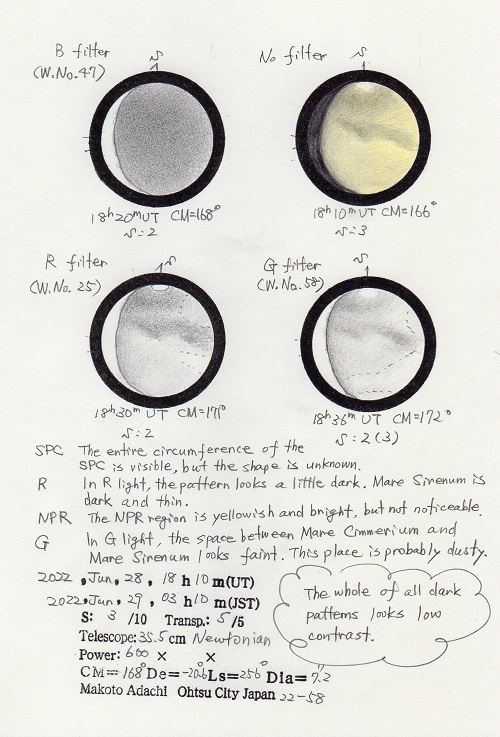 B filter
(W.No.47)
S
18h20mUT CM=168°
S=2
No filter
S
18h10mUT CM=166°
S=3
R filter
(W.No. 25)
S
18h30m UT CM=171°
S=2
G filter
(W.No.58)
S
18h36m UT CM=172°
S=2(3)
SPC The entire circumference of the
SPC is visible, but the shape is unknown.
R In R light, the pattern looks a little dark. Mare Sirenum is
dark and thin.
NPR The NPR region is yellowish and bright, but not noticeable.
G In G light, the space between Mare Cimmerium and
Mare Sirenum looks faint. This place is probably dusty.
2022, Jun, 28, 18 h 10 m(UT)
2022, Jun, 29, 03 h 10 m(JST)
S: 3 /10 Transp.: 5/5
Telescope: 35.5 cm Newtonian
Power: 600 × ×
CM=168° De=-20.6 Ls=256° Dia=7.2"
Makoto Adachi Ohtsu City Japan 22-58
The whole of all dark
patterns looks low
contrast.